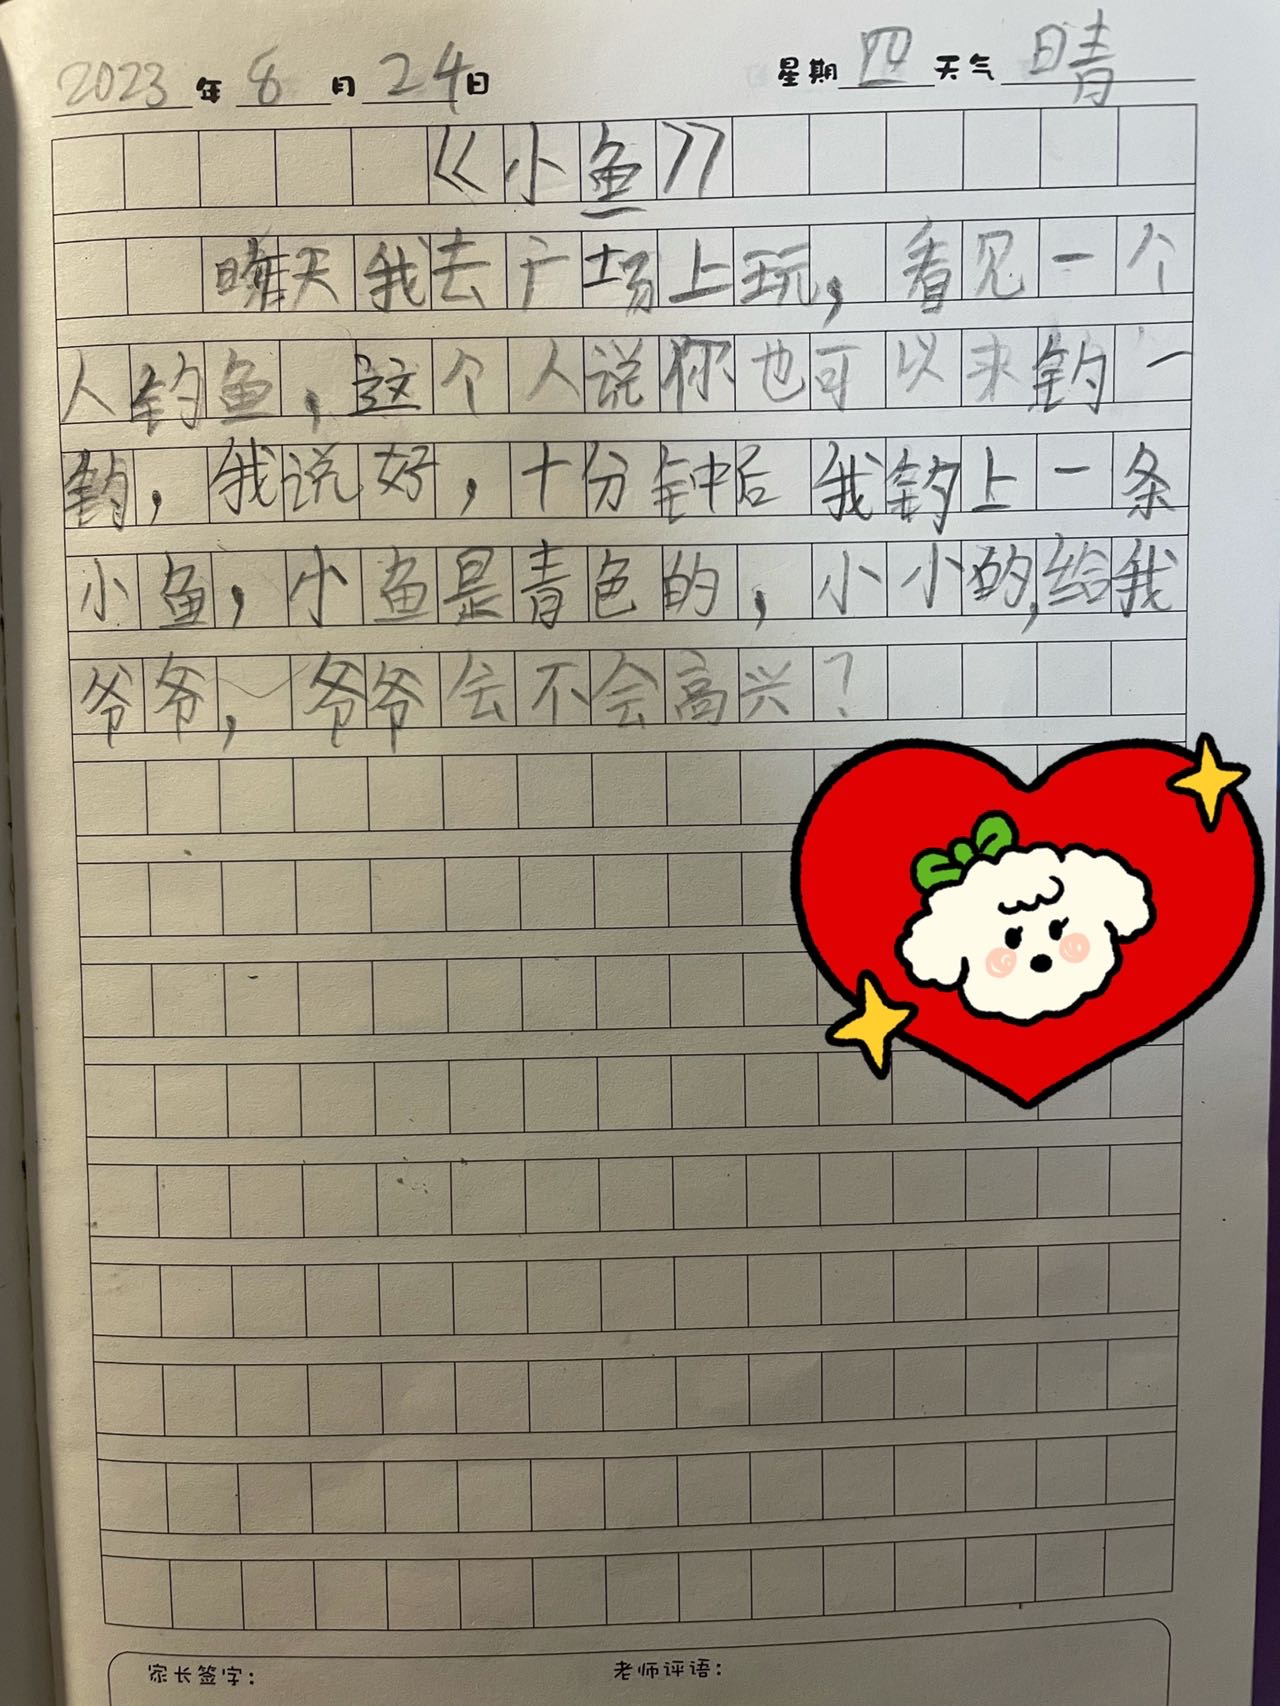 2023年8月24日 星期四天气晴
《小鱼》
昨天我去广场上玩，看见一个
人钓鱼，这个人说你也可以来钓一
钓，我说好，十分钟后我钓上一条
小鱼，小鱼是青色的，小小的，给我
爷爷，爷爷会不会高兴？
家长签字： 老师评语：